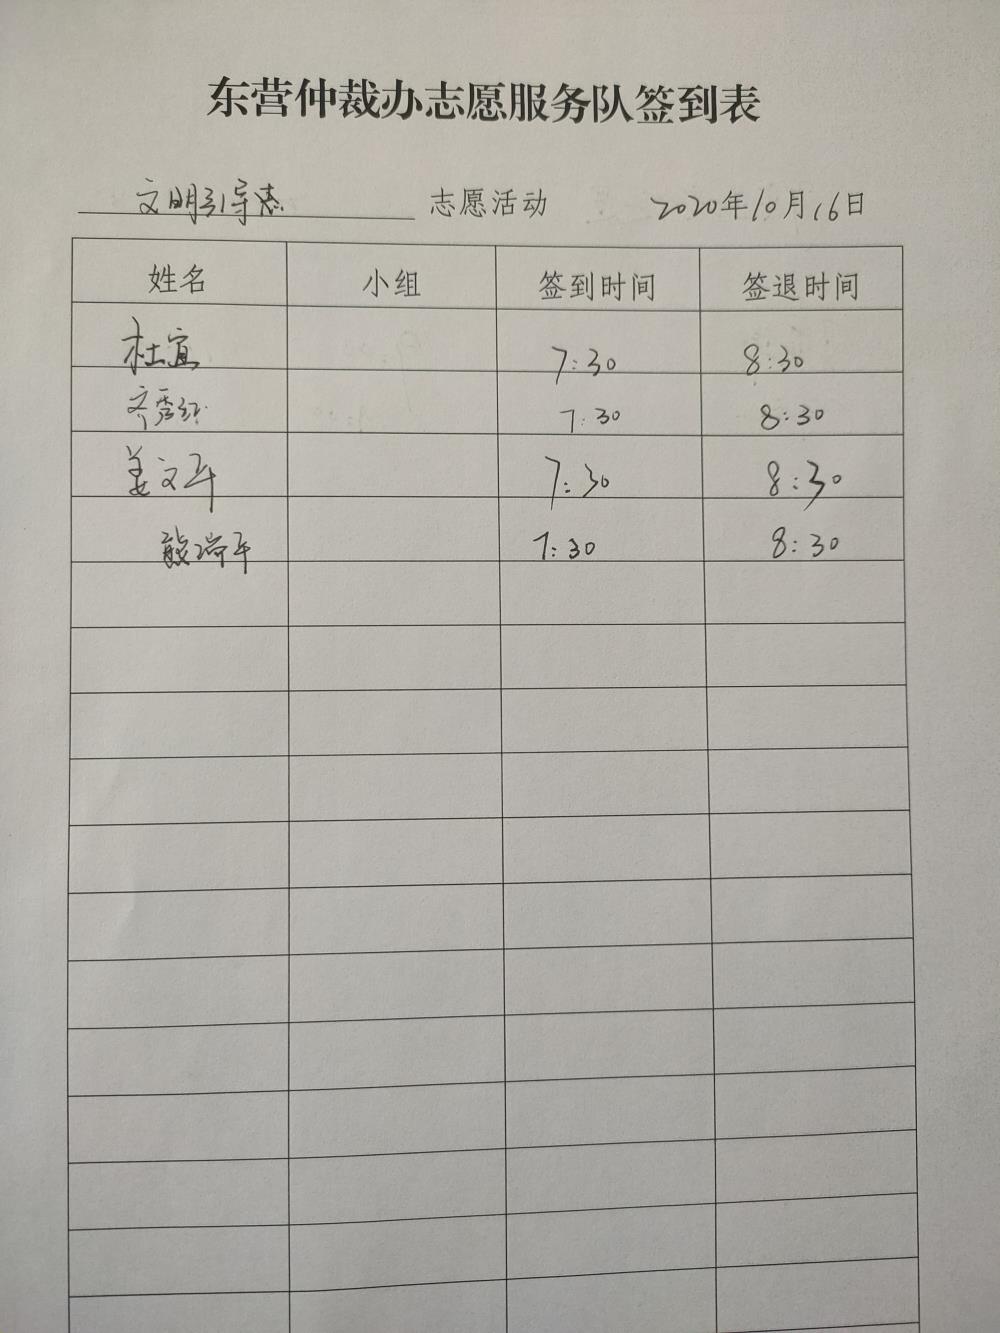 东营仲裁办志愿服务队签到表
文明引导 志愿活动 2020年10月16日
姓名 小组 签到时间 签退时间
杜宜 7:30 8:30
齐秀红 7:30 8:30
姜文平 7:30 8:30
瑞平 7:30 8:30